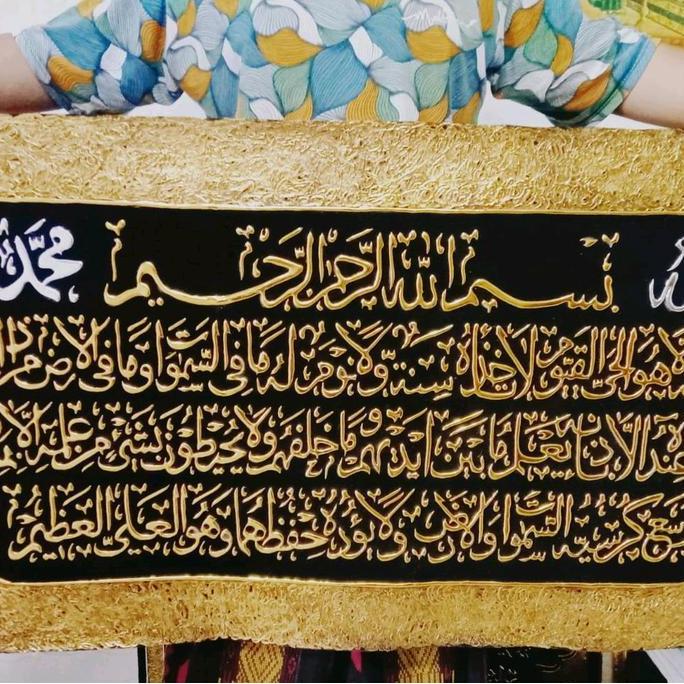 بسم الله الرحمن الرحيم
محمد
هو الحي القيوم لا تأخذه سنة ولا نوم له ما في السموت وما في الارض من
الا باذنه يعلم ما بين ايديهم وما خلفهم ولا يحيطون بشيء من علمه الا
كرسيه السموت والارض ولا يؤده حفظهما وهو العلي العظيم